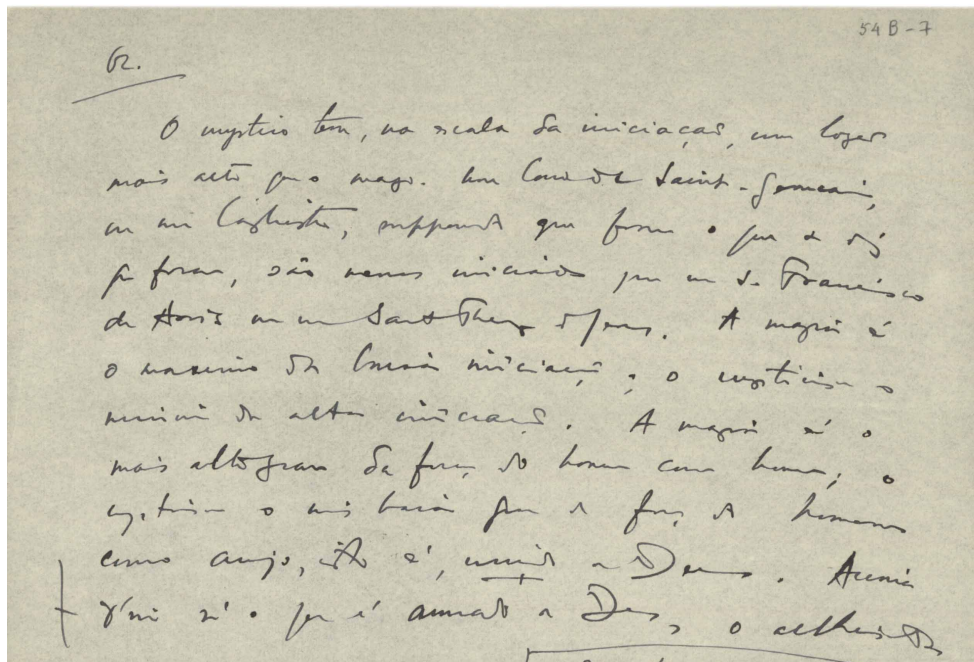 54 B-7
Gr.
O mystico tem, na escala da iniciação, um logar
mais alto que o mago. Um Conde de Saint-Germain,
ou um Cagliostro, suppondo que foram o que se diz
que foram, são menos iniciados que um S. Francisco
de Assis ou um Santa Thereza de Jesus. A magia é
o maximo da baixa iniciação; o mysticismo o
minimo da alta iniciação. A magia é o
mais alto grau da força do homem como homem; o
mysticismo o mais baixo grau da força do homem
como anjo, isto é, unido a Deus.
é o que é a Deus, o